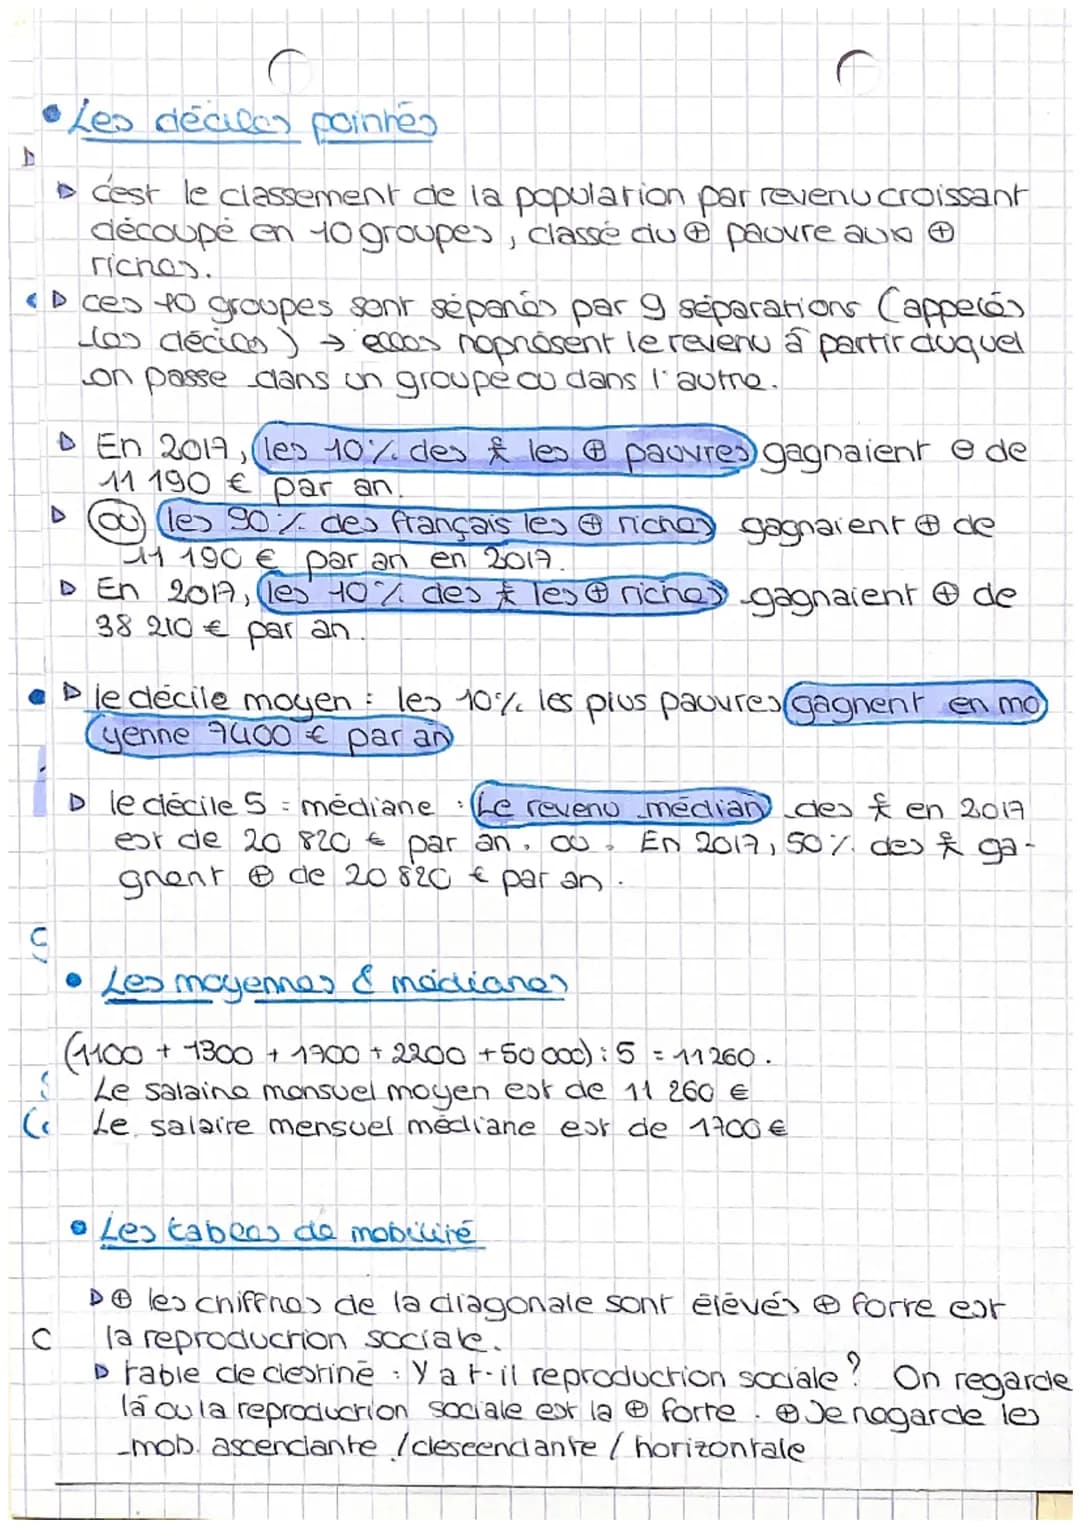 • Les déciles pointés
▷ c'est le classement de la population par revenu croissant
découpé en 10 groupes, classé du ⊕ pauvre aux ⊕
riches.
▷ ces 10 groupes sont séparés par 9 séparations (appelés
les déciles) → elles représent le revenu à partir duquel
on passe dans un groupe ou dans l'autre.
▷ En 2017, les 10% des 웃 les ⊕ pauvres gagnaient ⊖ de
11 190 € par an.
▷ ou les 90% des français les ⊕ riches gagnaient ⊕ de
11 190 € par an en 2017.
▷ En 2017, les 10% des 웃 les ⊕ riches gagnaient ⊕ de
38 210 € par an.
• ▷ le décile moyen : les 10% les plus pauvres gagnent en mo
yenne 7400 € par an
▷ le décile 5 = médiane : Le revenu médian des 웃 en 2017
est de 20 820 € par an. ou. En 2017, 50% des 웃 ga-
gnent ⊕ de 20 820 € par an.
• Les moyennes & médianes
(1100 + 1300 + 1700 + 2200 + 50 000) : 5 = 11 260.
Le salaire mensuel moyen est de 11 260 €
Le salaire mensuel médiane est de 1700 €
• Les tables de mobilité
▷ ⊕ les chiffres de la diagonale sont élevés ⊕ forte est
la reproduction sociale.
▷ table de destiné : Y a t-il reproduction sociale ? On regarde
là où la reproduction sociale est la ⊕ forte. ⊕ Je regarde les
mob. ascendante / descendante / horizontale